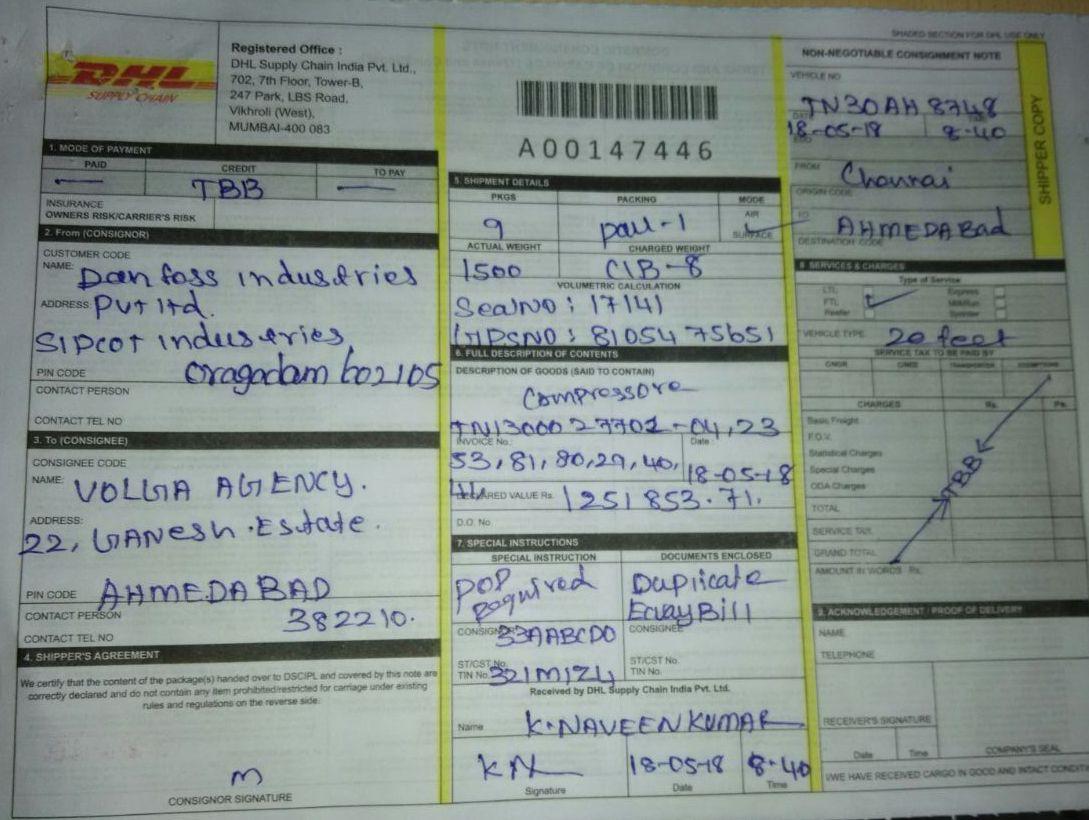 DHL
SUPPLY CHAIN
Registered Office :
DHL Supply Chain India Pvt. Ltd.,
702, 7th Floor, Tower-B,
247 Park, LBS Road,
Vikhroli (West),
MUMBAI-400 083
1. MODE OF PAYMENT
PAID CREDIT TO PAY
— TBB —
INSURANCE
OWNERS RISK/CARRIER'S RISK
2. From (CONSIGNOR)
CUSTOMER CODE
NAME: Danfoss industries
ADDRESS: Pvt ltd.
Sipcot industries,
PIN CODE oragadam 602105
CONTACT PERSON
CONTACT TEL NO
3. To (CONSIGNEE)
CONSIGNEE CODE
NAME: VOLGA AGENCY.
ADDRESS:
22, GANesh Estate.
PIN CODE AHMEDABAD
CONTACT PERSON 382210.
CONTACT TEL NO
4. SHIPPER'S AGREEMENT
We certify that the content of the package(s) handed over to DSCIPL and covered by this note are
correctly declared and do not contain any item prohibited/restricted for carriage under existing
rules and regulations on the reverse side.
CONSIGNOR SIGNATURE
A00147446
5. SHIPMENT DETAILS
PKGS PACKING MODE
9 AIR
SURFACE
ACTUAL WEIGHT CHARGED WEIGHT
1500 CIB-8
VOLUMETRIC CALCULATION
SealNO : 17141
GPSNO : 81054 75651
6. FULL DESCRIPTION OF CONTENTS
DESCRIPTION OF GOODS (SAID TO CONTAIN)
Compressore
TN13000 27701-04,23
INVOICE No.: Date :
53,81,80,29,40, 18-05-18
DECLARED VALUE Rs. 1251853.71.
D.O. No.
7. SPECIAL INSTRUCTIONS
SPECIAL INSTRUCTION DOCUMENTS ENCLOSED
POP Duplicate
Required EwayBill
CONSIGNOR 33AABCDO CONSIGNEE
ST/CST No. ST/CST No.
TIN No. 321M1Z4 TIN No.
Received by DHL Supply Chain India Pvt. Ltd.
Name K.NAVEENKUMAR
KN 18-05-18 8-40
Signature Date Time
SHADED SECTION FOR DHL USE ONLY
NON-NEGOTIABLE CONSIGNMENT NOTE
VEHICLE NO
TN30AH 8748
DATE
18-05-18 8-40
FROM Chennai
ORIGIN CODE
TO AHMEDABad
DESTINATION CODE
SHIPPER COPY
8 SERVICES & CHARGES
Type of Service
LTL Express
FTL
Reefer
VEHICLE TYPE 20 feet
SERVICE TAX TO BE PAID BY
CNGR CNEE TRANSPORTER
CHARGES Rs. Ps.
Basic Freight
F.O.V.
Statistical Charges
Special Charges
ODA Charges
TBB
TOTAL
SERVICE TAX
GRAND TOTAL
AMOUNT IN WORDS Rs.
9. ACKNOWLEDGEMENT / PROOF OF DELIVERY
NAME
TELEPHONE
RECEIVER'S SIGNATURE
Date Time COMPANY'S SEAL
I/WE HAVE RECEIVED CARGO IN GOOD AND INTACT CONDITI